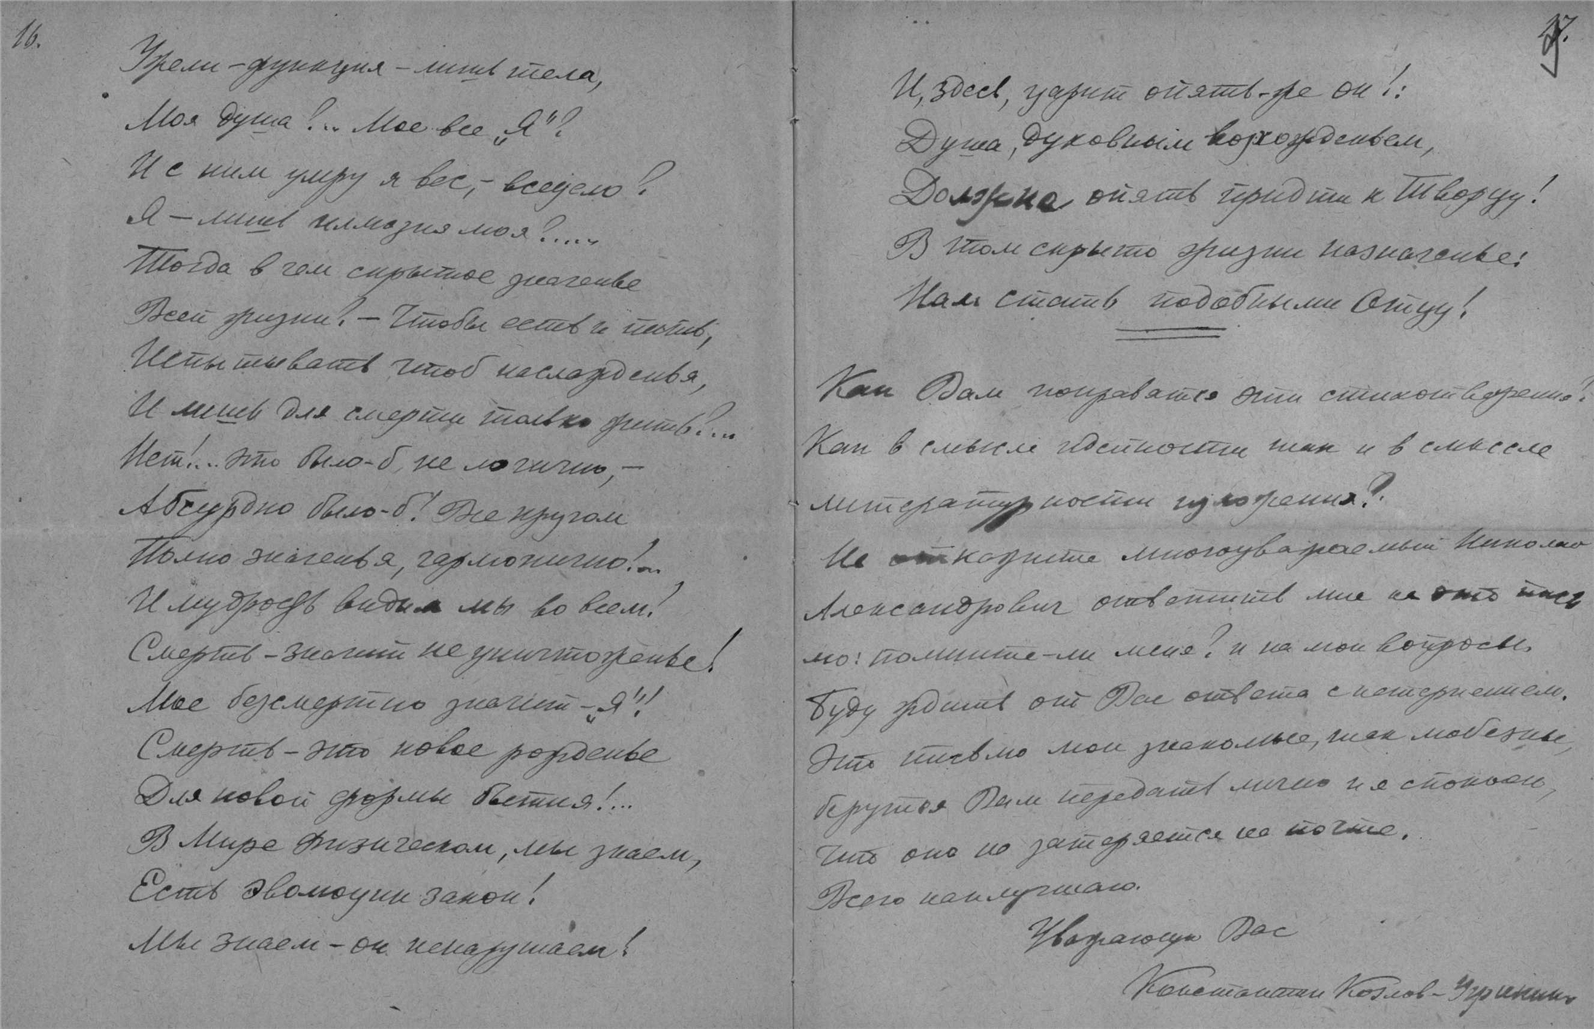 16.
Ужели – функция – лишь тела,
Моя душа?.. Мое все „Я"?
И с ним умру я весь, – всецело?
Я – лишь иллюзия моя?.....
Тогда в чем скрытое значенье
Всей жизни? – Чтобы есть и пить,
Испытывать чтоб наслажденья,
И лишь для смерти только жить?...
Нет!... Это было-б не логично, –
Абсурдно было-б! Все кругом
Полно значенья, гармонично!..
И мудрость видим мы во всем!
Смерть – значит не уничтоженье!
Мое безсмертно значит – „Я"!
Смерть – это новое рожденье
Для новой формы бытия!...
В Мире физическом, мы знаем,
Есть эволюции закон!
Мы знаем – он ненарушаем!
17.
И, здесь, царит опять-же он!:
Душа, духовным восхожденьем,
Должна опять придти к Творцу!
В том скрыто жизни назначенье:
Нам стать подобными Отцу!
Как Вам понравятся эти стихотворения?
Как в смысле идейности так и в смысле
литературности изложения?
Не откажите многоуважаемый Николай
Александрович ответить мне на это пись
мо: помните-ли меня? и на мои вопросы.
Буду ждать от Вас ответа с нетерпением.
Это письмо мои знакомые, так любезны,
берутся Вам передать лично и я спокоен,
что оно не затеряется на почте.
Всего наилучшаго.
Уважающий Вас
Константин Козлов-